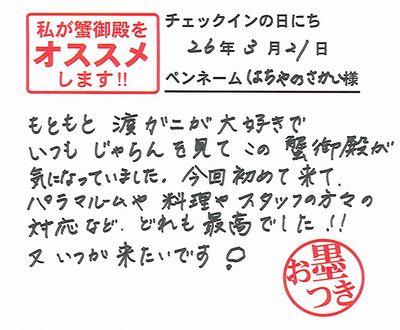 私が蟹御殿を
オススメ
します!!
チェックインの日にち
26年3月21日
ペンネーム はちやのさかい様
もともと 渡ガニが大好きで
いつも じゃらんを見て この 蟹御殿が
気になっていました。今回初めて来て、
パラマルームや 料理や スタッフの方々の
対応など、どれも最高でした!!
又いつか来たいです
お墨つき